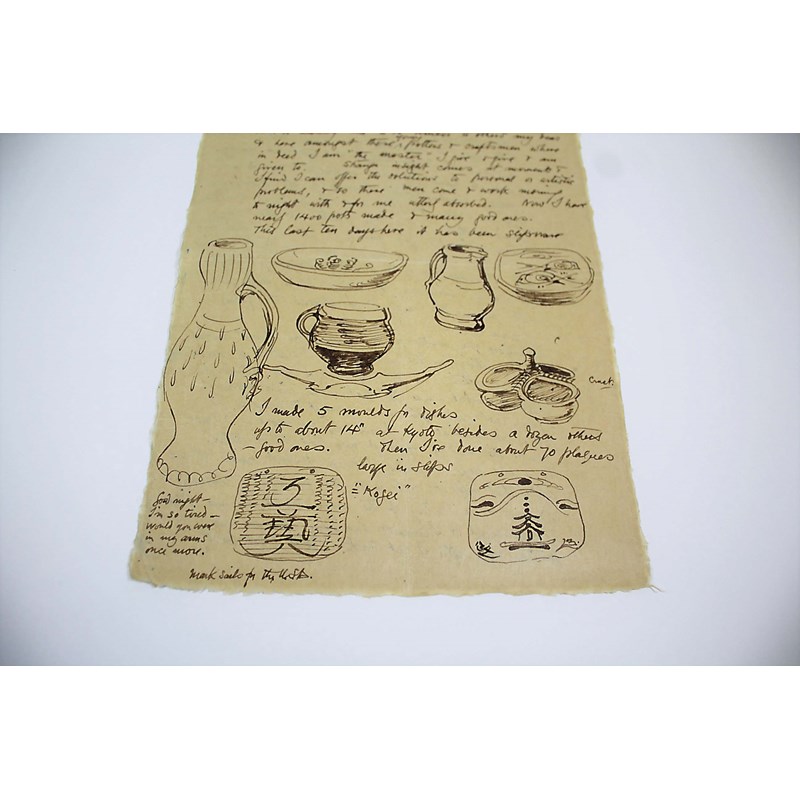 & here amongst these potters & craftsmen where
in deed I am "the master" I give & give & am
given to. Strange insight comes at moments &
I find I can offer the solutions to personal or artistic
problems, & so these men come & work morning
& night with & for me utterly absorbed. Now I have
nearly 1400 pots made & many good ones.
This last ten days here it has been slipware
Cruet.
I made 5 moulds for dishes
up to about 14" at Kyoto besides a dozen others
- good ones. Then I've done about 70 plaques
large in slips
= "Kogei"
工藝
Good night -
I'm so tired -
would you were
in my arms
once more.
Mark sails for the